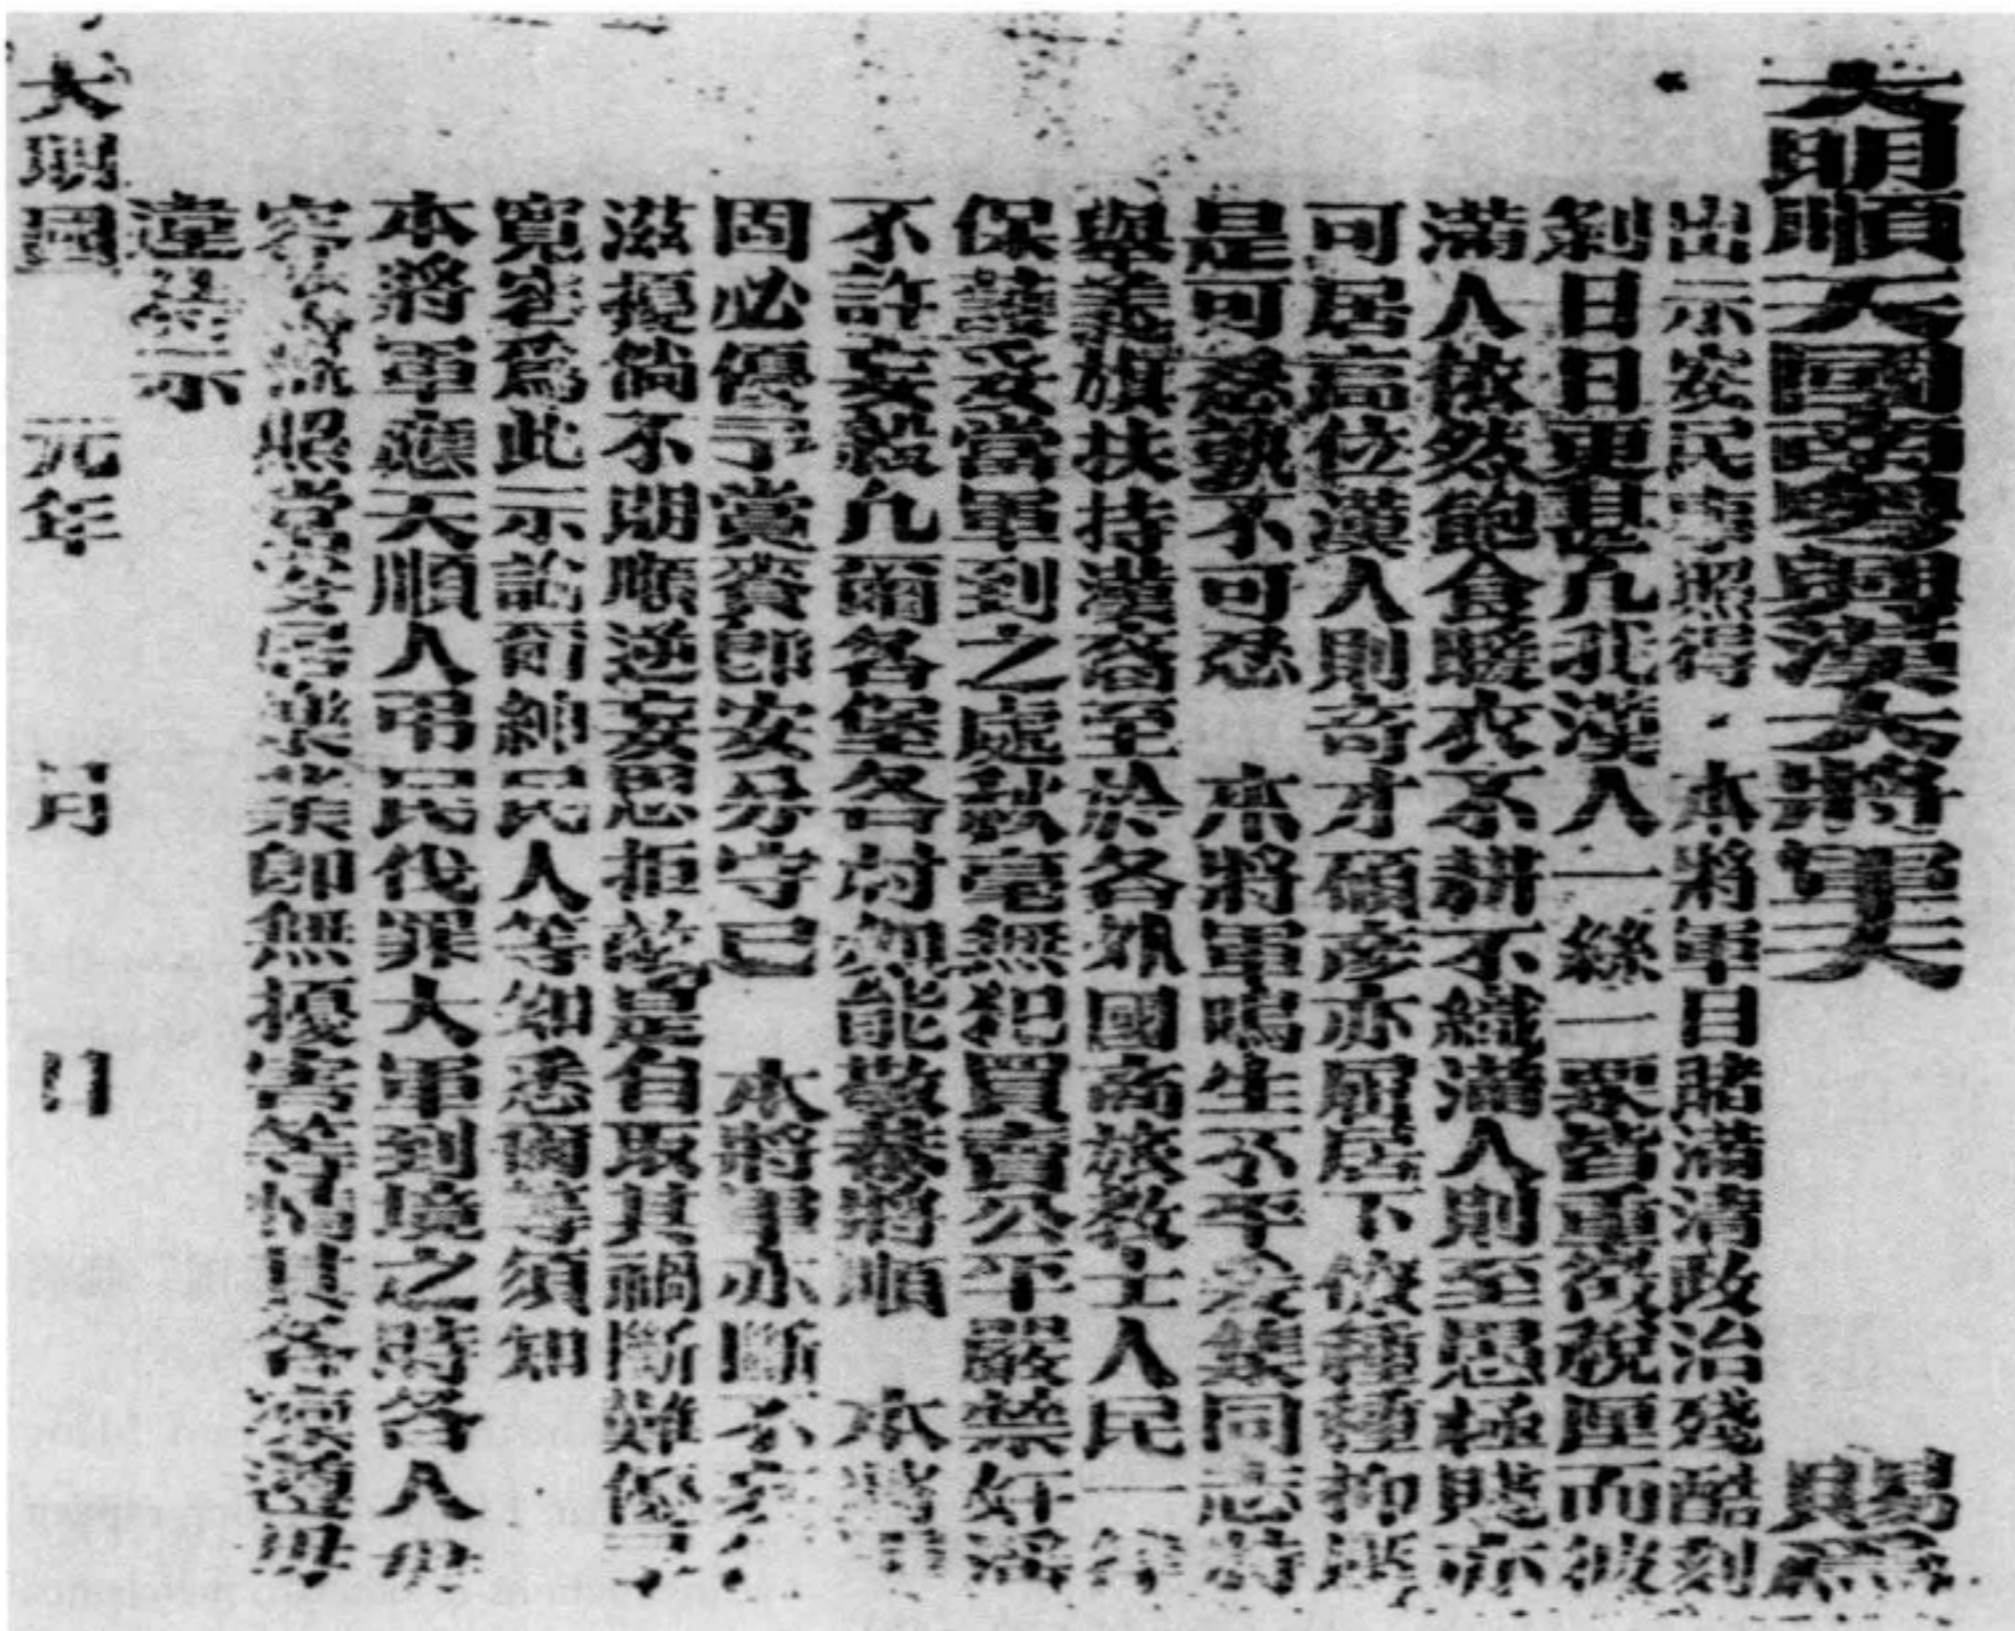 大明順天國南粵興漢大將軍 賜 為
出示安民事照得 本將軍目睹滿清政治殘酷刻
剝日日更甚凡我漢人一絲一粟皆重歛稅厘而彼
滿人儼然飽食暖衣不耕不織滿人則至愚極賤亦
可居高位漢人則奇才碩彥亦屈居下僚種種抑壓
是可忍孰不可忍 本將軍鳴生不平爰集同志
舉義旗扶持漢裔至於各外國商旅教士人民一律
保護妥當軍到之處秋毫無犯買賣公平嚴禁奸淫
不許妄殺凡爾各堡各村如能敬恭將順 本將軍
固必優予賞賚即安分守己 本將軍亦斷不
滋擾倘不明順逆妄思拒敵是自取其禍斷難優予
寬宏為此示諭爾紳民人等知悉爾等須知
本將軍應天順人弔民伐罪大軍到境之時各人毋
容 照常安居樂業即無擾害等情其各凜遵毋
違特示
大明國 元年 月 日